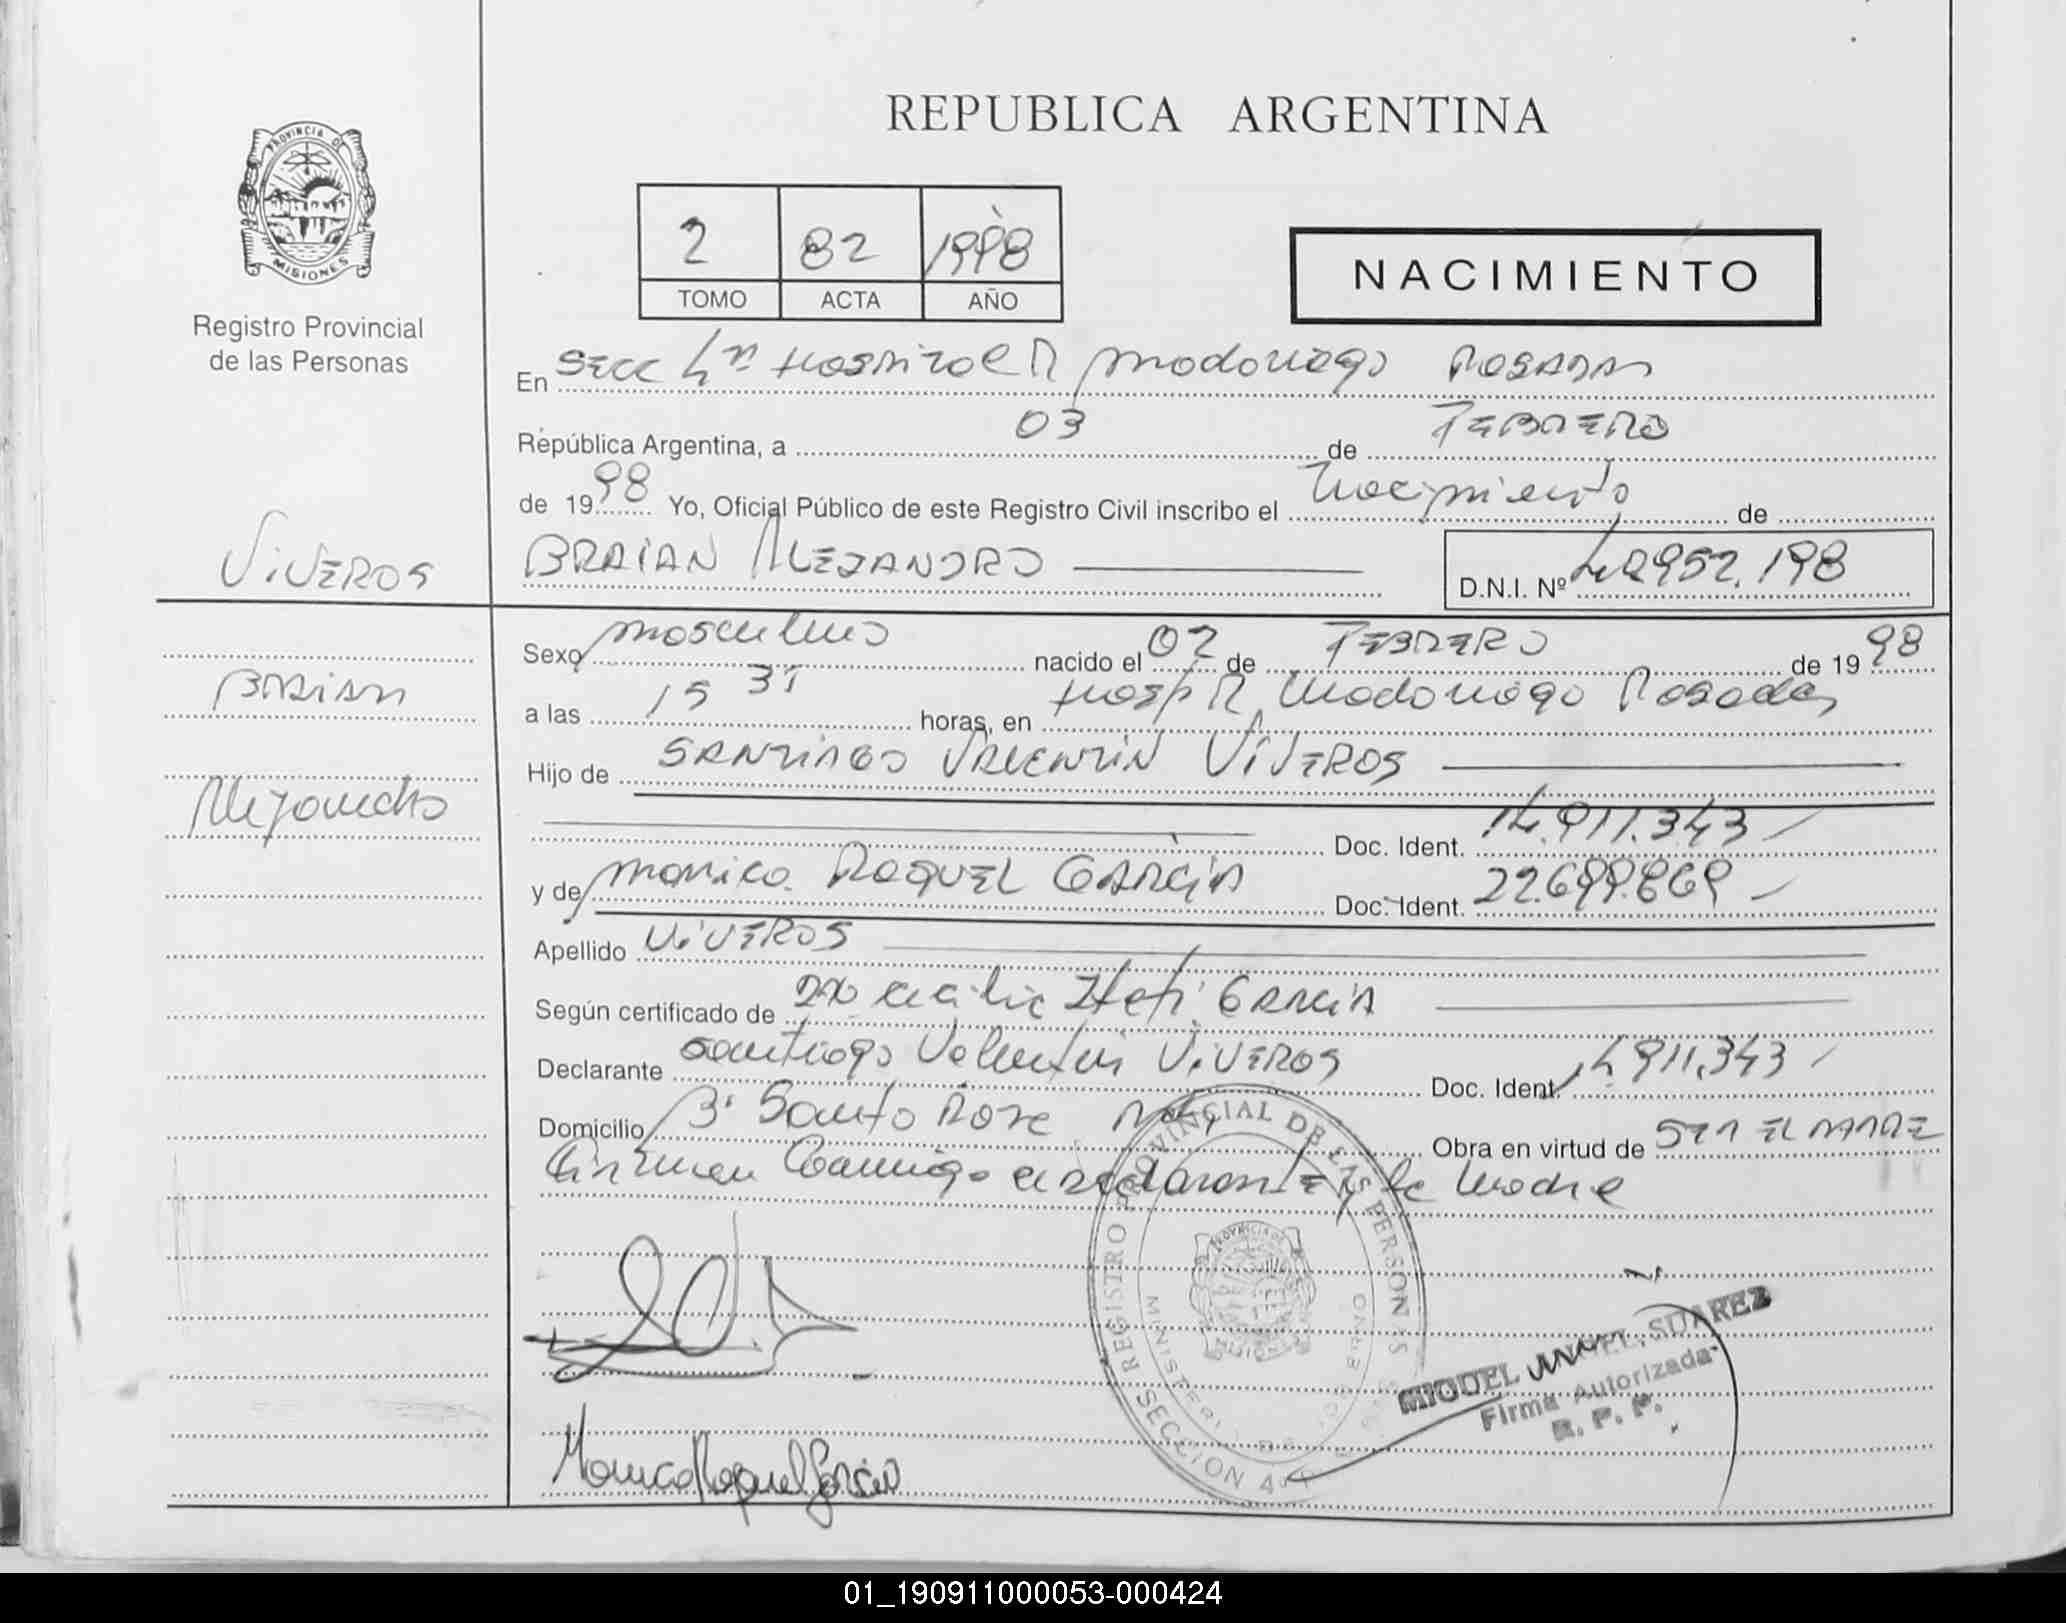 REPUBLICA ARGENTINA
PROVINCIA DE
MISIONES
Registro Provincial
de las Personas
2 82 1998
TOMO ACTA AÑO
NACIMIENTO
En Secc 4ta Hospital R Madariaga Posadas
República Argentina, a 03 de FEBRERO
de 1998 Yo, Oficial Público de este Registro Civil inscribo el Nacimiento de
VIVEROS
BRAIAN ALEJANDRO
D.N.I. Nº 40952.198
Braian
Alejandro
Sexo masculino nacido el 02 de FEBRERO de 1998
a las 15 31 horas, en Hosp R Madariaga Posadas
Hijo de SANTIAGO VALENTIN VIVEROS
Doc. Ident. 14.911.343
y de Monica RAQUEL GARCIA Doc. Ident. 22.699.869
Apellido VIVEROS
Según certificado de Cecilia GARCIA
Declarante Santiago Valentin VIVEROS Doc. Ident. 14.911.343
Domicilio Bº Santa Rosa Obra en virtud de SER EL PADRE
Firman Conmigo el declarante y la Madre
REGISTRO PROVINCIAL DE LAS PERSONAS
SECCION 4
MIGUEL ANGEL SUAREZ
Firma Autorizada
R. P. P.
Monica Raquel Garcia
01_190911000053-000424